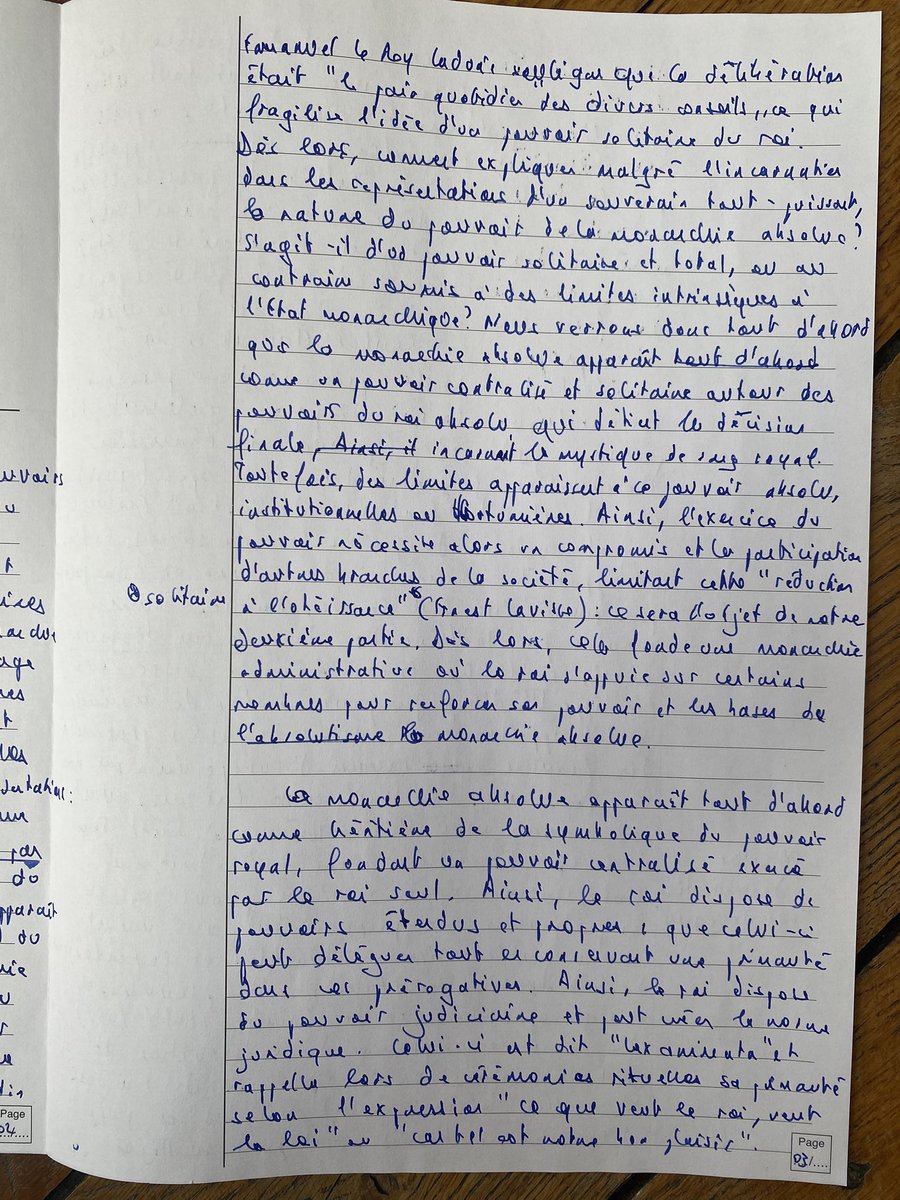 Emmanuel Le Roy Ladurie souligne que la délibération
était "le pain quotidien des divers conseils", ce qui
fragilise l'idée d'un pouvoir solitaire du roi.
Dès lors, comment expliquer malgré l'incarnation
dans les représentations d'un souverain tout-puissant,
la nature du pouvoir de la monarchie absolue ?
S'agit-il d'un pouvoir solitaire et total, ou au
contraire soumis à des limites intrinsèques à
l'Etat monarchique ? Nous verrons donc tout d'abord
que la monarchie absolue apparaît tout d'abord
comme un pouvoir centralisé et solitaire autour des
pouvoirs du roi absolu qui détient la décision
finale, Ainsi, il incarnant la mystique de sang royal.
Toutefois, des limites apparaissent à ce pouvoir absolu,
institutionnelles ou coutumières. Ainsi, l'exercice du
pouvoir nécessite alors un compromis et la participation
d'autres branches de la société, limitant cette "réduction
solitaire
à l'obéissance" (Ernest Lavisse) : ce sera l'objet de notre
deuxième partie. Dès lors, cela fonde une monarchie
administrative où le roi s'appuie sur certains
membres pour renforcer son pouvoir et les bases de
l'absolutisme la monarchie absolue.
La monarchie absolue apparaît tout d'abord
comme héritière de la symbolique du pouvoir
royal, fondant un pouvoir centralisé exercé
par le roi seul. Ainsi, le roi dispose de
pouvoirs étendus et propres, que celui-ci
peut déléguer tout en conservant une primauté
dans ses prérogatives. Ainsi, le roi dispose
du pouvoir judiciaire et peut créer la norme
juridique. Celui-ci est dit "lex animata" et
rappelle lors de cérémonies rituelles sa primauté
selon l'expression "ce que veut le roi, veut
la loi" ou "car tel est notre bon plaisir".
Page
03/....
uvoirs
age
par
du
apparaît
du
Page
02/....